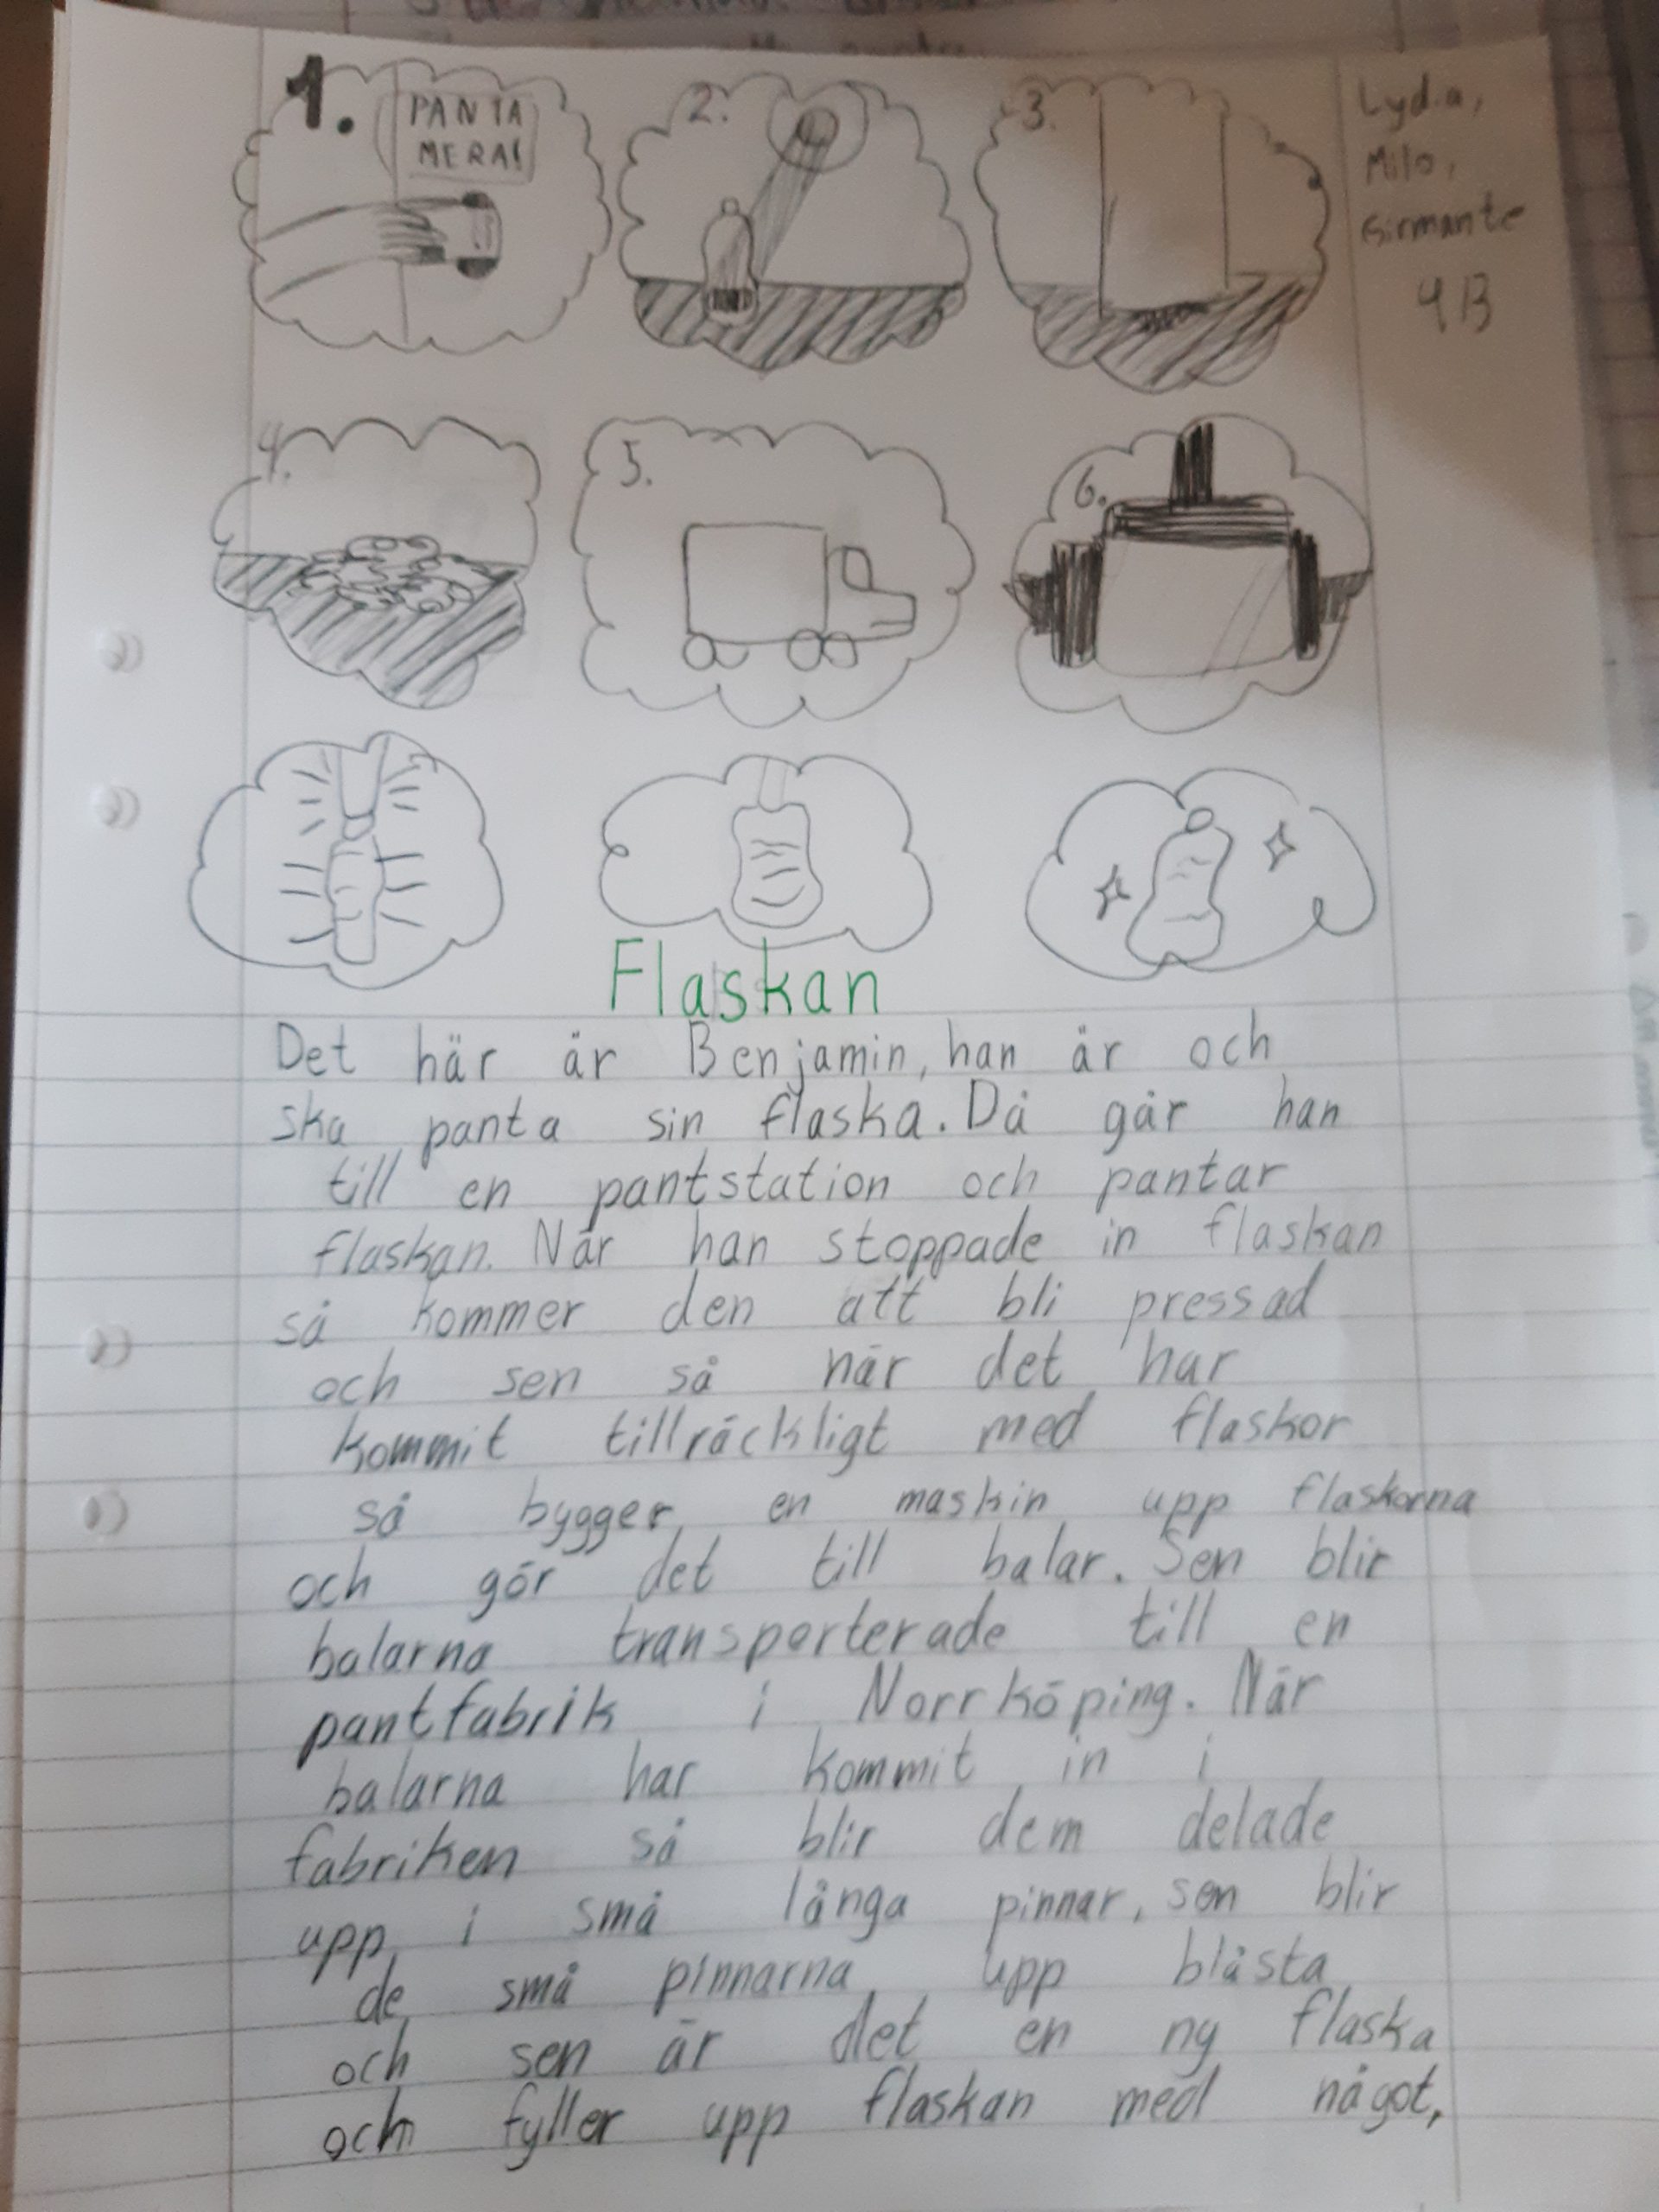 1.
PANTA
MERA!
2.
3.
Lydia,
Milo,
Girmante
4B
4.
5.
6.
Flaskan
Det här är Benjamin, han är och
ska panta sin flaska. Då går han
till en pantstation och pantar
flaskan. När han stoppade in flaskan
så kommer den att bli pressad
och sen så när det har
kommit tillräckligt med flaskor
så bygger en maskin upp flaskorna
och gör det till balar. Sen blir
balarna transporterade till en
pantfabrik i Norrköping. När
balarna har kommit in i
fabriken så blir dem delade
upp i små långa pinnar, sen blir
de små pinnarna upp blåsta
och sen är det en ny flaska
och fyller upp flaskan med något,